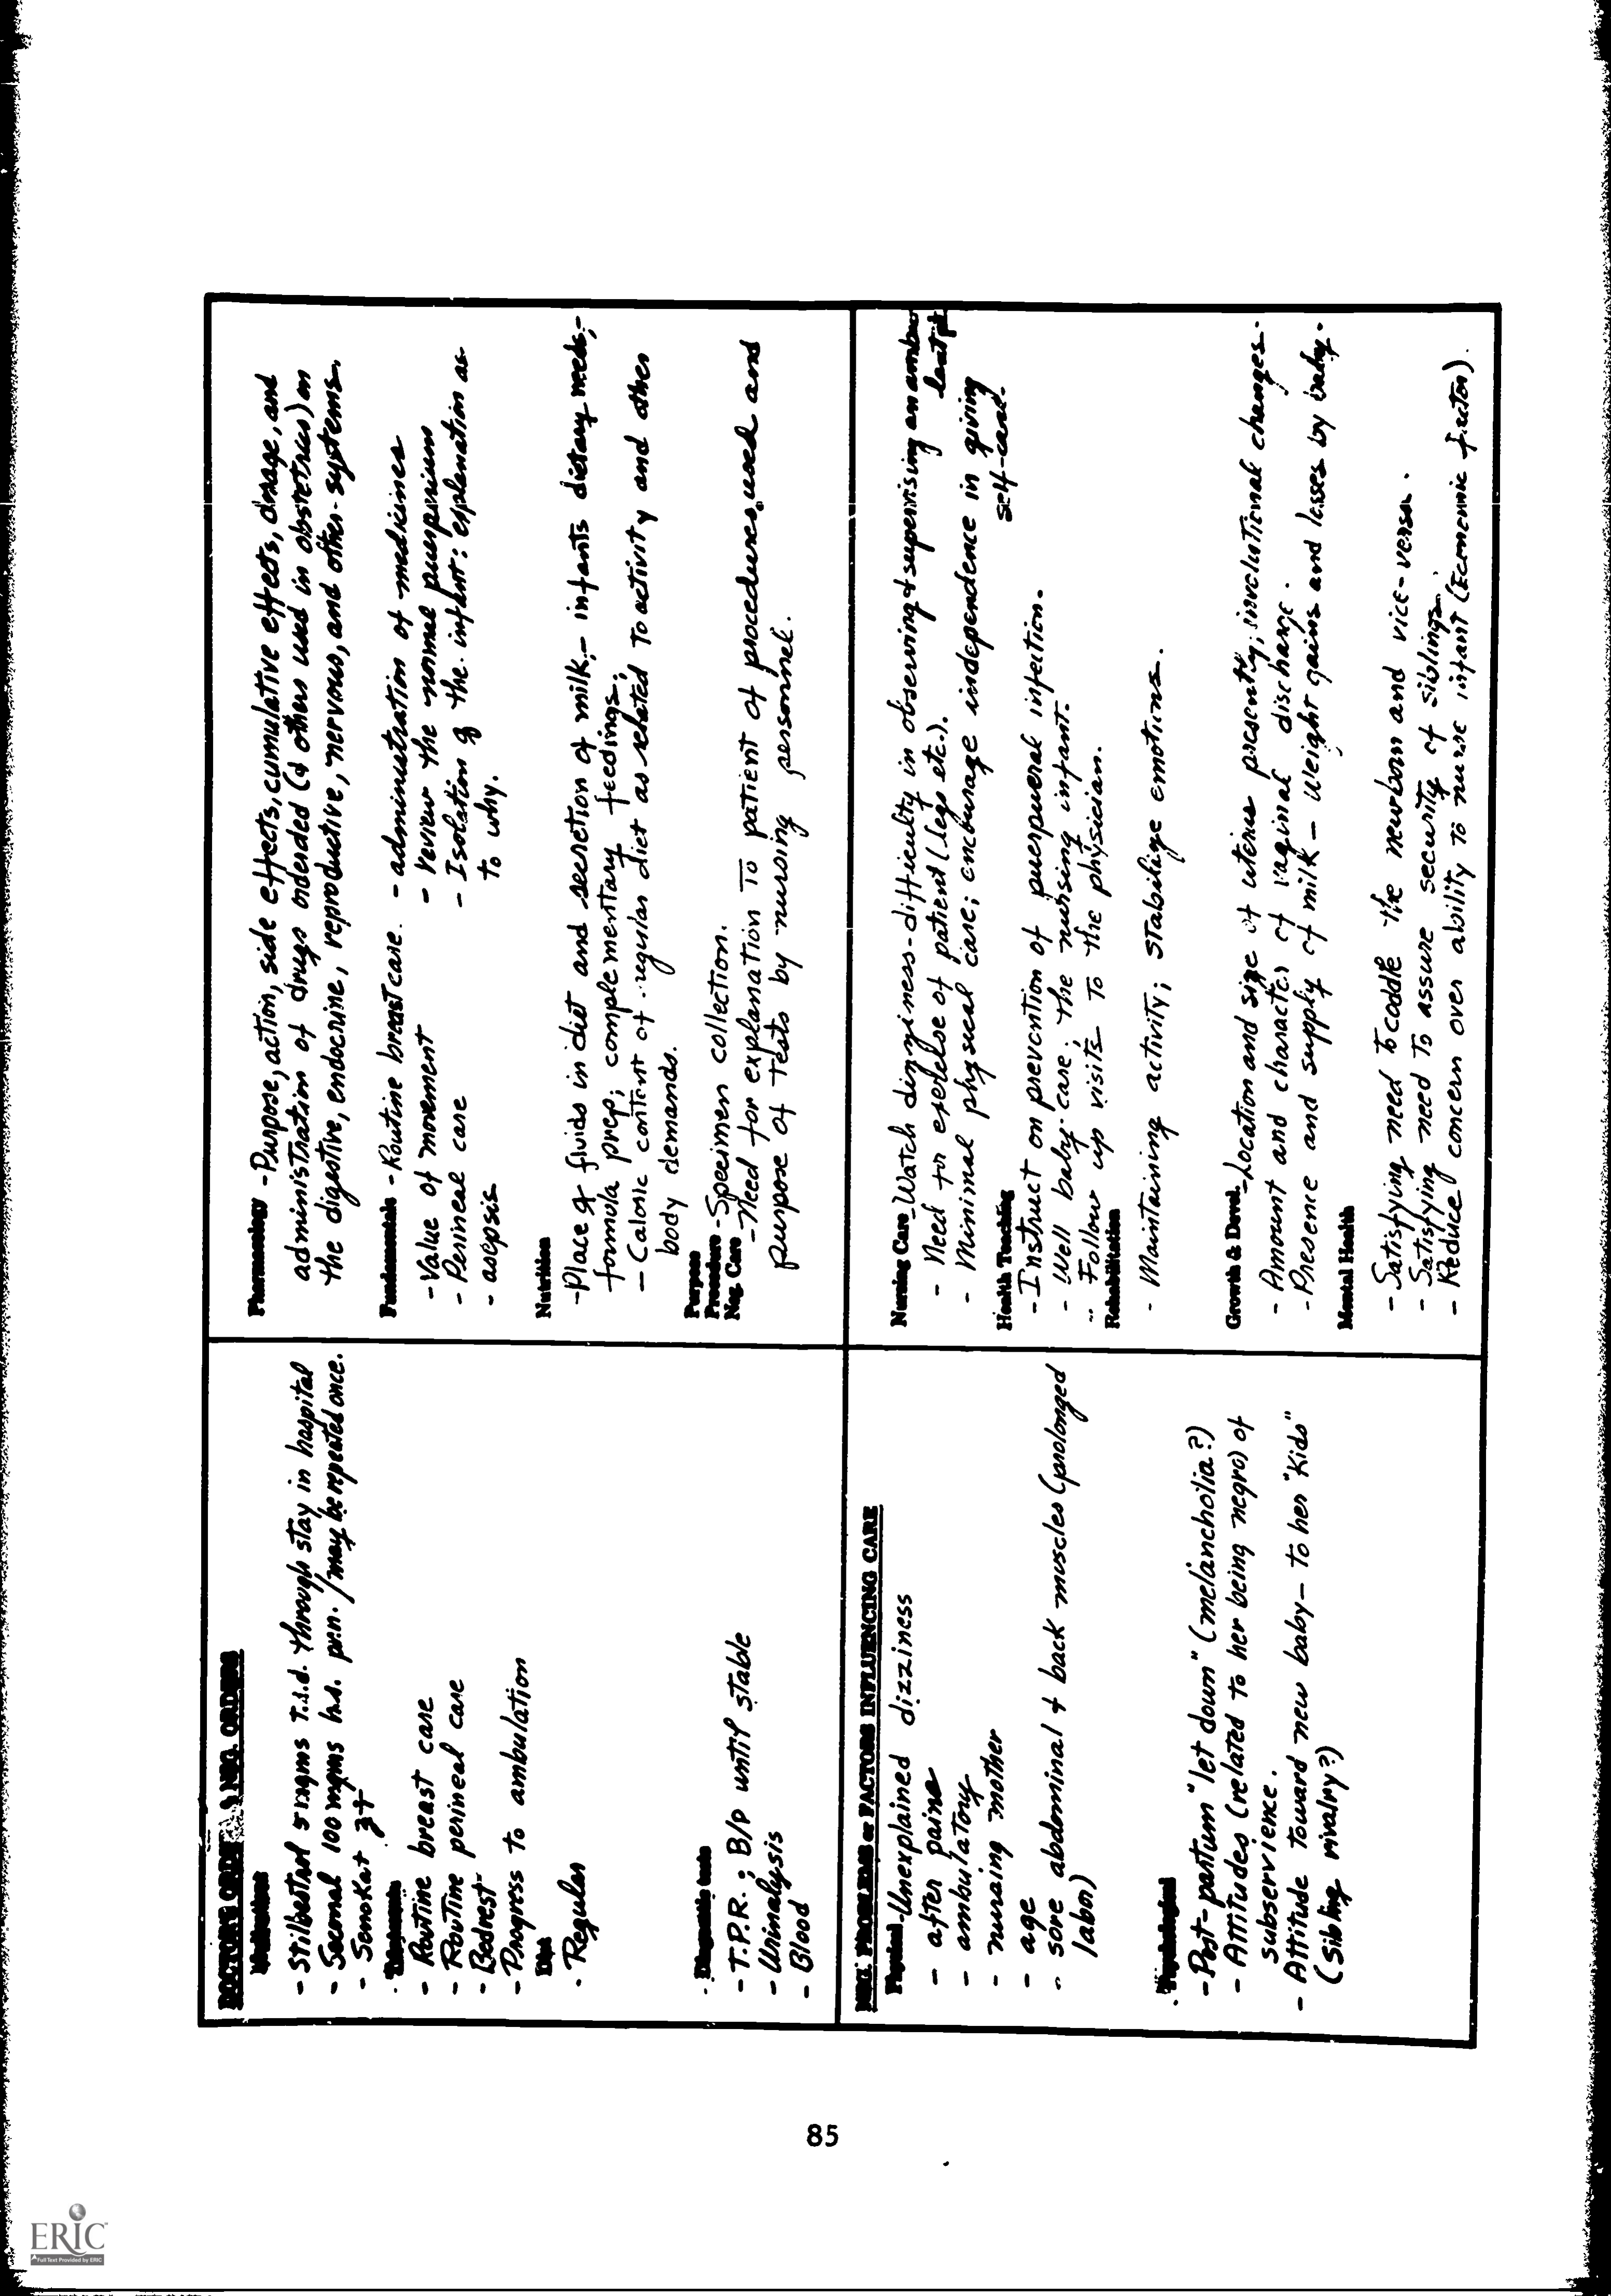 DOCTOR'S ORDERS & NSG. ORDERS
Medications
- Stilbestrol 5 mgms T.i.d. through stay in hospital
- Seconal 100 mgms h.s. p.r.n. / may be repeated once.
- Senokat
Treatments
- Routine breast care
- Routine perineal care
- Bedrest
- Progress to ambulation
Diet
- Regular
Diagnostic tests
- T.P.R.; B/P until stable
- Urinalysis
- Blood
Pharmacology - Purpose, action, side effects, cumulative effects, dosage, and
administration of drugs ordered (& others used in obstetrics) on
the digestive, endocrine, reproductive, nervous, and other systems.
Fundamentals - Routine breast care. - administration of medicines
- Value of movement - review the normal puerperium
- Perineal care - Isolation of the infant: explanation as
- asepsis to why.
Nutrition
- Place of fluids in diet and secretion of milk; - infants dietary needs; -
formula prep; complementary feedings;
- Caloric content of regular diet as related to activity and other
body demands.
Purpose
Procedure - Specimen collection.
Nsg. Care - Need for explanation to patient of procedures used and
purpose of tests by nursing personnel.
NSG. PROBLEMS or FACTORS INFLUENCING CARE
Physical - Unexplained dizziness
- after pains
- ambulatory
- nursing mother
- age
- sore abdominal & back muscles (prolonged
labor)
Psychological
- Post-partum "let down" (melancholia?)
- Attitudes (related to her being negro) of
subservience.
- Attitude toward new baby - to her "kids"
(Sibling rivalry?)
Nursing Care - Watch dizziness - difficulty in observing & supervising an ambu
- Need for exercise of patient (legs etc.).
- Minimal physical care; encourage independence in giving
self-care.
Health Teaching
- Instruct on prevention of puerperal infection.
- Well baby care; the nursing infant.
- Follow up visits to the physician.
Rehabilitation
- Maintaining activity; stabilize emotions.
Growth & Devel. - Location and size of uterus presently; involutional changes.
- Amount and character of vaginal discharge.
- Presence and supply of milk - weight gains and losses by baby.
Mental Health
- Satisfying need to coddle the newborn and vice-versa.
- Satisfying need to assure security of siblings.
- Reduce concern over ability to nurse infant (Economic factor).
85
ERIC
Full Text Provided by ERIC